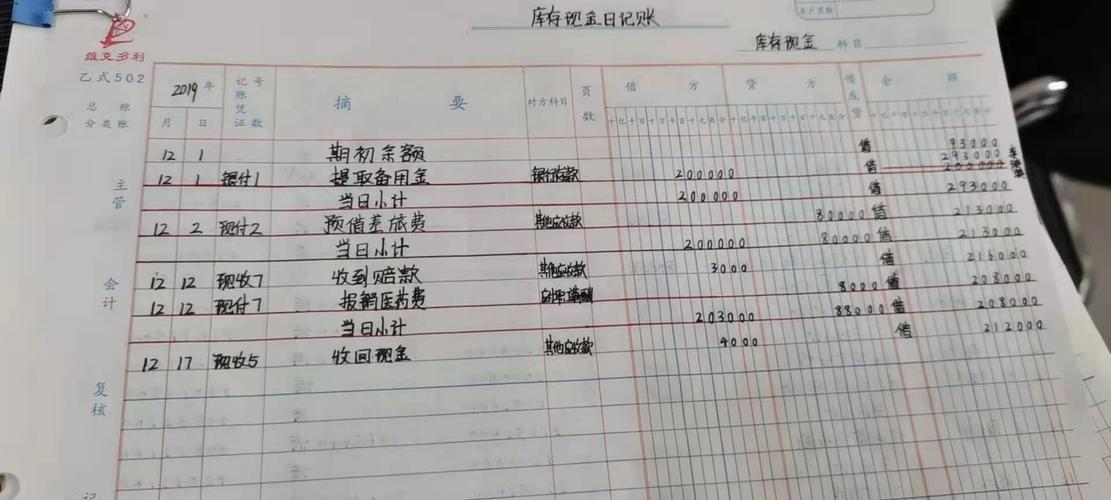 库存现金日记账
库存现金 科目
维克多利
乙式502
总账
分类账
2019年 记账凭证号数 摘要 对方科目 页数 借方 贷方 借或贷 余额
月 日 十亿千百十万千百十元角分 十亿千百十万千百十元角分 十亿千百十万千百十元角分
12 1 期初余额 借 93000
12 1 银付1 提取备用金 银行存款 200000 借 293000
当日小计 200000 借 293000
12 2 现付2 预借差旅费 其他应收款 80000 借 213000
当日小计 200000 80000 借 213000
12 12 现收7 收到赔款 其他应收款 3000 借 216000
12 12 现付7 报销医药费 应付职工薪酬 8000 借 208000
当日小计 203000 88000 借 208000
12 17 现收5 收回现金 其他应收款 4000 借 212000
主管
会计
复核
记